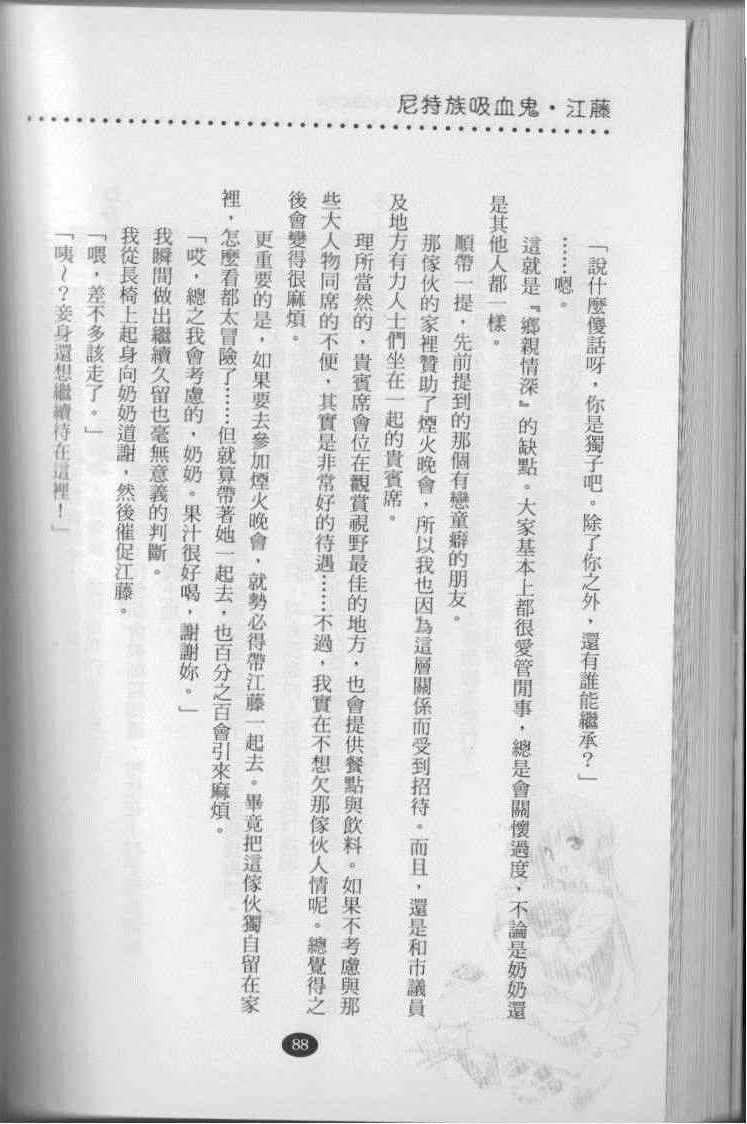 尼特族吸血鬼・江藤
「說什麼傻話呀，你是獨子吧。除了你之外，還有誰能繼承？」
……嗯。
這就是『鄉親情深』的缺點。大家基本上都很愛管閒事，總是會關懷過度，不論是奶奶還
是其他人都一樣。
順帶一提，先前提到的那個有戀童癖的朋友。
那傢伙的家裡贊助了煙火晚會，所以我也因為這層關係而受到招待。而且，還是和市議員
及地方有力人士們坐在一起的貴賓席。
理所當然的，貴賓席會位在觀賞視野最佳的地方，也會提供餐點與飲料。如果不考慮與那
些大人物同席的不便，其實是非常好的待遇……不過，我實在不想欠那傢伙人情呢。總覺得之
後會變得很麻煩。
更重要的是，如果要去參加煙火晚會，就勢必得帶江藤一起去。畢竟把這傢伙獨自留在家
裡，怎麼看都太冒險了……但就算帶著她一起去，也百分之百會引來麻煩。
「哎，總之我會考慮的，奶奶。果汁很好喝，謝謝妳。」
我瞬間做出繼續久留也毫無意義的判斷。
我從長椅上起身向奶奶道謝，然後催促江藤。
「喂，差不多該走了。」
「咦～？妾身還想繼續待在這裡！」
88